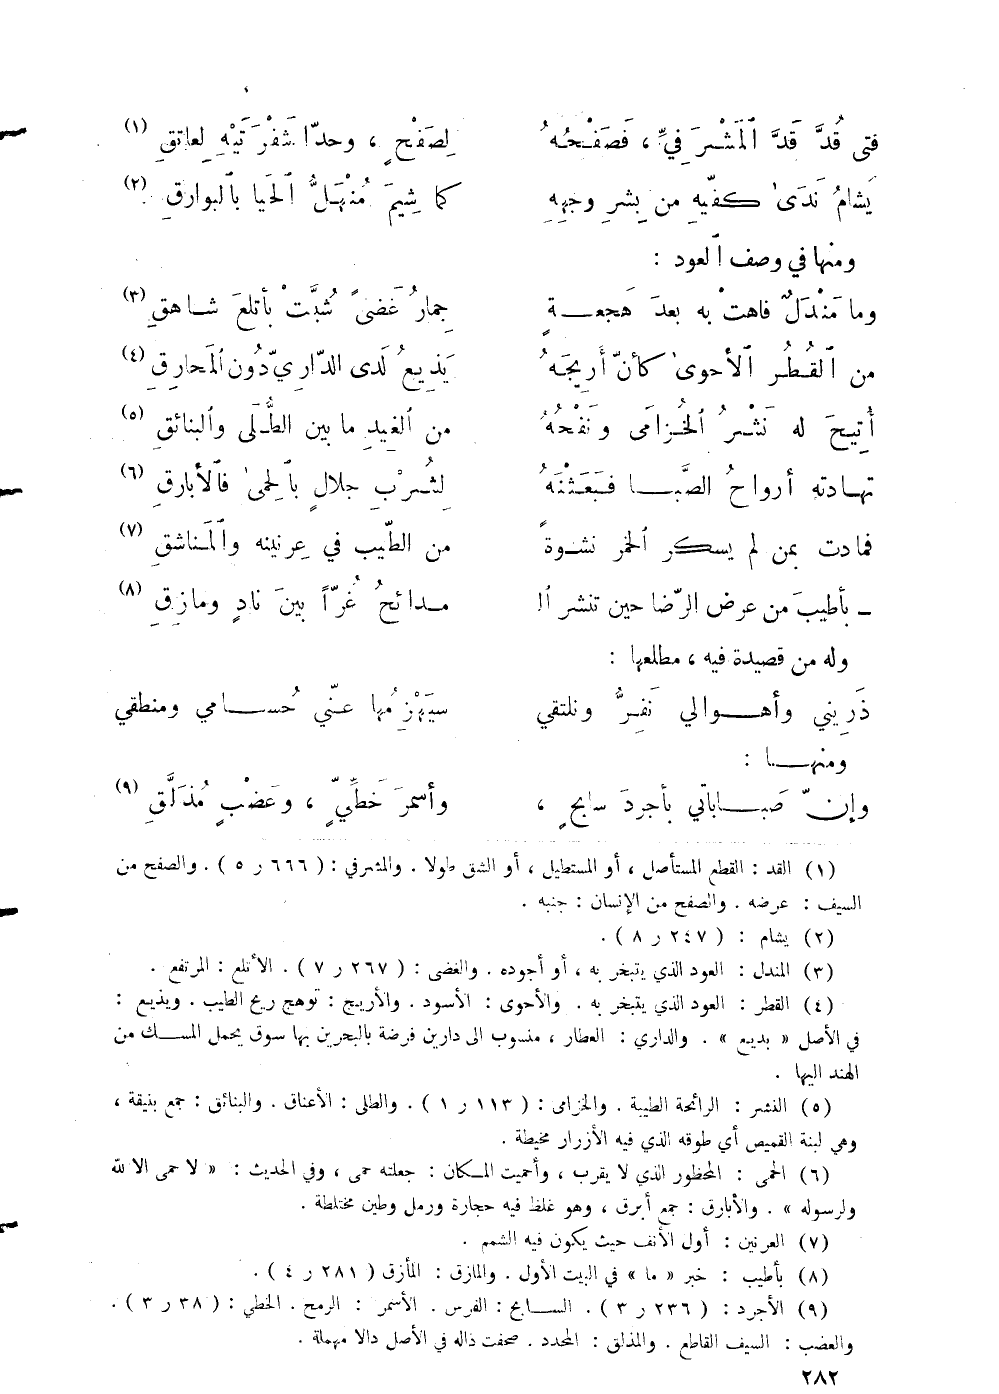 فتى قُدَّ قَدَّ ٱلمَشْرَفيِّ ، فَصَفْحُهُ لِصَفْحٍ ، وحدّا شَفْرَتَيْهِ لِعاتِقِ (١)
يَشامُ نَدَىٰ كفّيهِ من بِشرِ وجهِهِ كما شِيمَ مُنْهَلُّ ٱلحَيا بٱلبوارقِ (٢)
ومنها في وصف ٱلعود :
وما مَنْدَلٌ فاهتْ به بعدَ هَجعةٍ جِمارُ غَضىً شُبَّتْ بأتلعَ شاهقِ (٣)
من ٱلقُطُرِ ٱلأحوىٰ كأنّ أريجَهُ يَذيعُ لدى الدّاريّ دُون ٱلمَحارِقِ (٤)
أُتِيحَ له نَشْرُ ٱلخُزامَى ونَفْحُهُ من ٱلغِيدِ ما بين الطُّلَى وٱلبنائقِ (٥)
تهادته أرواحُ الصَّبا فَبَعَثْنَهُ لِشُرْبٍ حِلالٍ بٱلحِمىٰ فٱلأبارقِ (٦)
فمادت بمن لم يسكر ٱلخمر نشوةً من الطّيب في عِرنينه وٱلمناشقِ (٧)
ـ بأطيبَ من عرض الرّضا حين تنشر ٱلـ مدائحُ غُرّاً بينَ نادٍ ومازِقِ (٨)
وله من قصيدة فيه ، مطلعها :
ذَرِيني وأهوالي نَفِرُّ ونلتقي سيَهْزِمُها عنّي حُسامي ومنطقي
ومنها :
وإنّ صَباباتي بأجردَ سابحٍ ، وأسمرَ خَطِّيٍّ ، وعَضْبٍ مُذَلَّقِ (٩)
(١) القد : القطع المستأصل ، أو المستطيل ، أو الشق طولا . والمشرفي : ( ٦٦٦ ر ٥ ) . والصفح من
السيف : عرضه . والصفح من الإنسان : جنبه .
(٢) يشام : ( ٢٤٧ ر ٨ ) .
(٣) المندل : العود الذي يتبخر به ، أو أجوده . والغضى : ( ٢٦٧ ر ٧ ) . الأتلع : المرتفع .
(٤) القطر : العود الذي يتبخر به . والأحوى : الأسود . والأريج : توهج ريح الطيب . ويذيع :
في الأصل « بديع » . والداري : العطار ، منسوب الى دارين فرضة بالبحرين بها سوق يحمل المسك من
الهند اليها .
(٥) النشر : الرائحة الطيبة . والخزامى : ( ١١٣ ر ١ ) . والطلى : الأعناق . والبنائق : جمع بنيقة ،
وهي لبنة القميص أي طوقه الذي فيه الأزرار مخيطة .
(٦) الحمى : المحظور الذي لا يقرب ، وأحميت المكان : جعلته حمى ، وفي الحديث : « لا حمى الا لله
ولرسوله » . والأبارق : جمع أبرق ، وهو غلظ فيه حجارة ورمل وطين مختلطة .
(٧) العرنين : أول الأنف حيث يكون فيه الشمم .
(٨) بأطيب : خبر « ما » في البيت الأول . والمازق : المأزق ( ٢٨١ ر ٤ ) .
(٩) الأجرد : ( ٢٣٦ ر ٣ ) . السابح : الفرس . الأسمر : الرمح . الخطي : ( ٣٨ ر ٣ ) .
والعضب : السيف القاطع . والمذلق : المحدد . صحفت ذاله في الأصل دالا مهملة .
٢٨٢